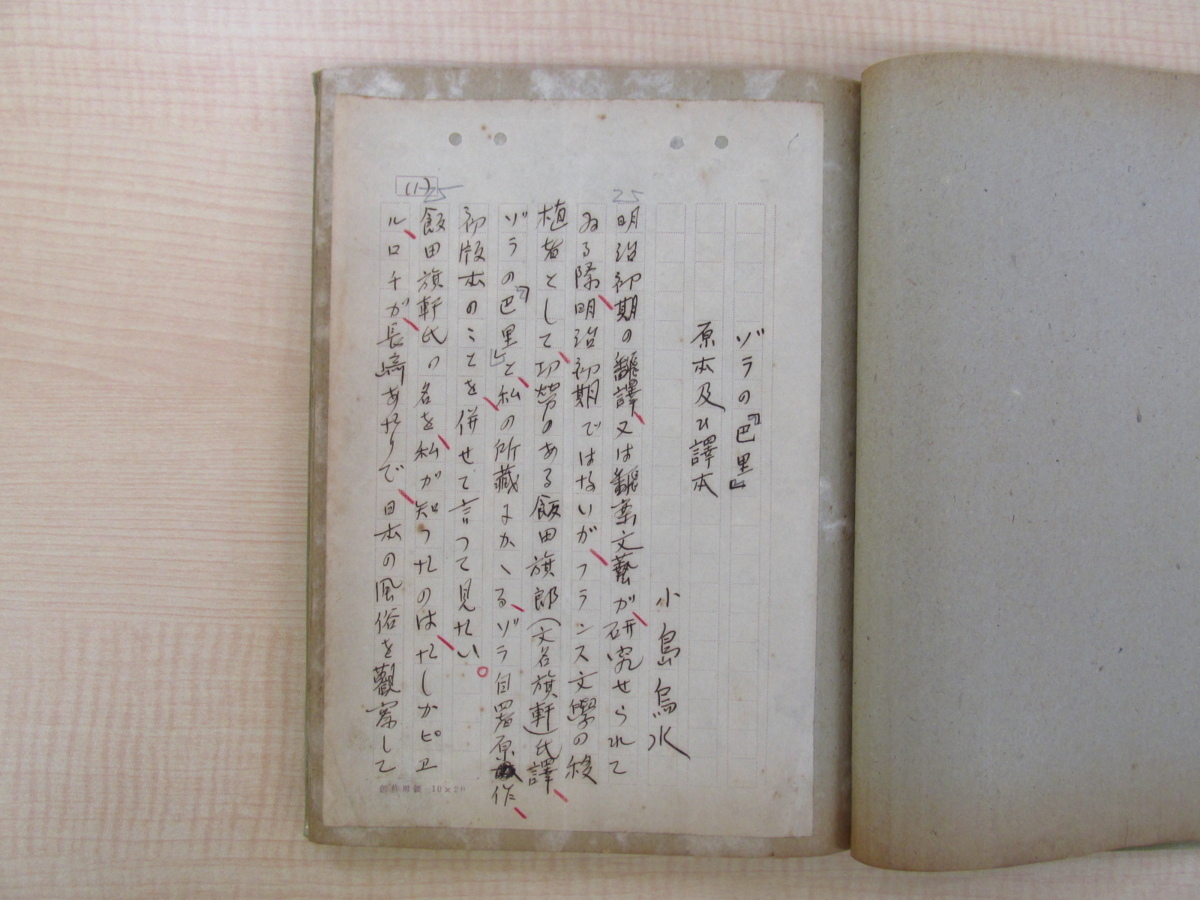 ゾラの『巴里』
原本及び譯本
小島烏水
25
明治初期の飜譯、又は飜案文藝が、研究せられて
ゐる際、明治初期ではないが、フランス文學の移
植者として、功勞のある飯田旗郎(文名旗軒)氏譯、
ゾラの『巴里』と、私の所藏にかゝる、ゾラ自署原作、
初版本のことを、併せて言つて見たい。
25
(1)
飯田旗軒氏の名を、私が知つたのは、たしかピエ
ル、ロチが、長崎あたりで、日本の風俗を觀察して
10×20